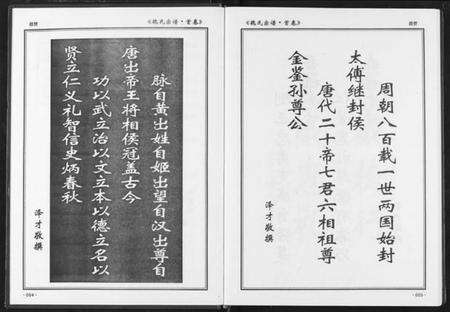 《魏氏宗谱·首卷》
脉自黄出姓自姬出望自汉出尊自
唐出帝王将相侯冠盖古今
功以武立治以文立本以德立名以
贤立仁义礼智信史炳春秋
泽才敬撰
·004·
《魏氏宗谱·首卷》
周朝八百载一世两国始封
太傅继封侯
唐代二十帝七君六相祖尊
金鉴孙尊公
泽才敬撰
·005·